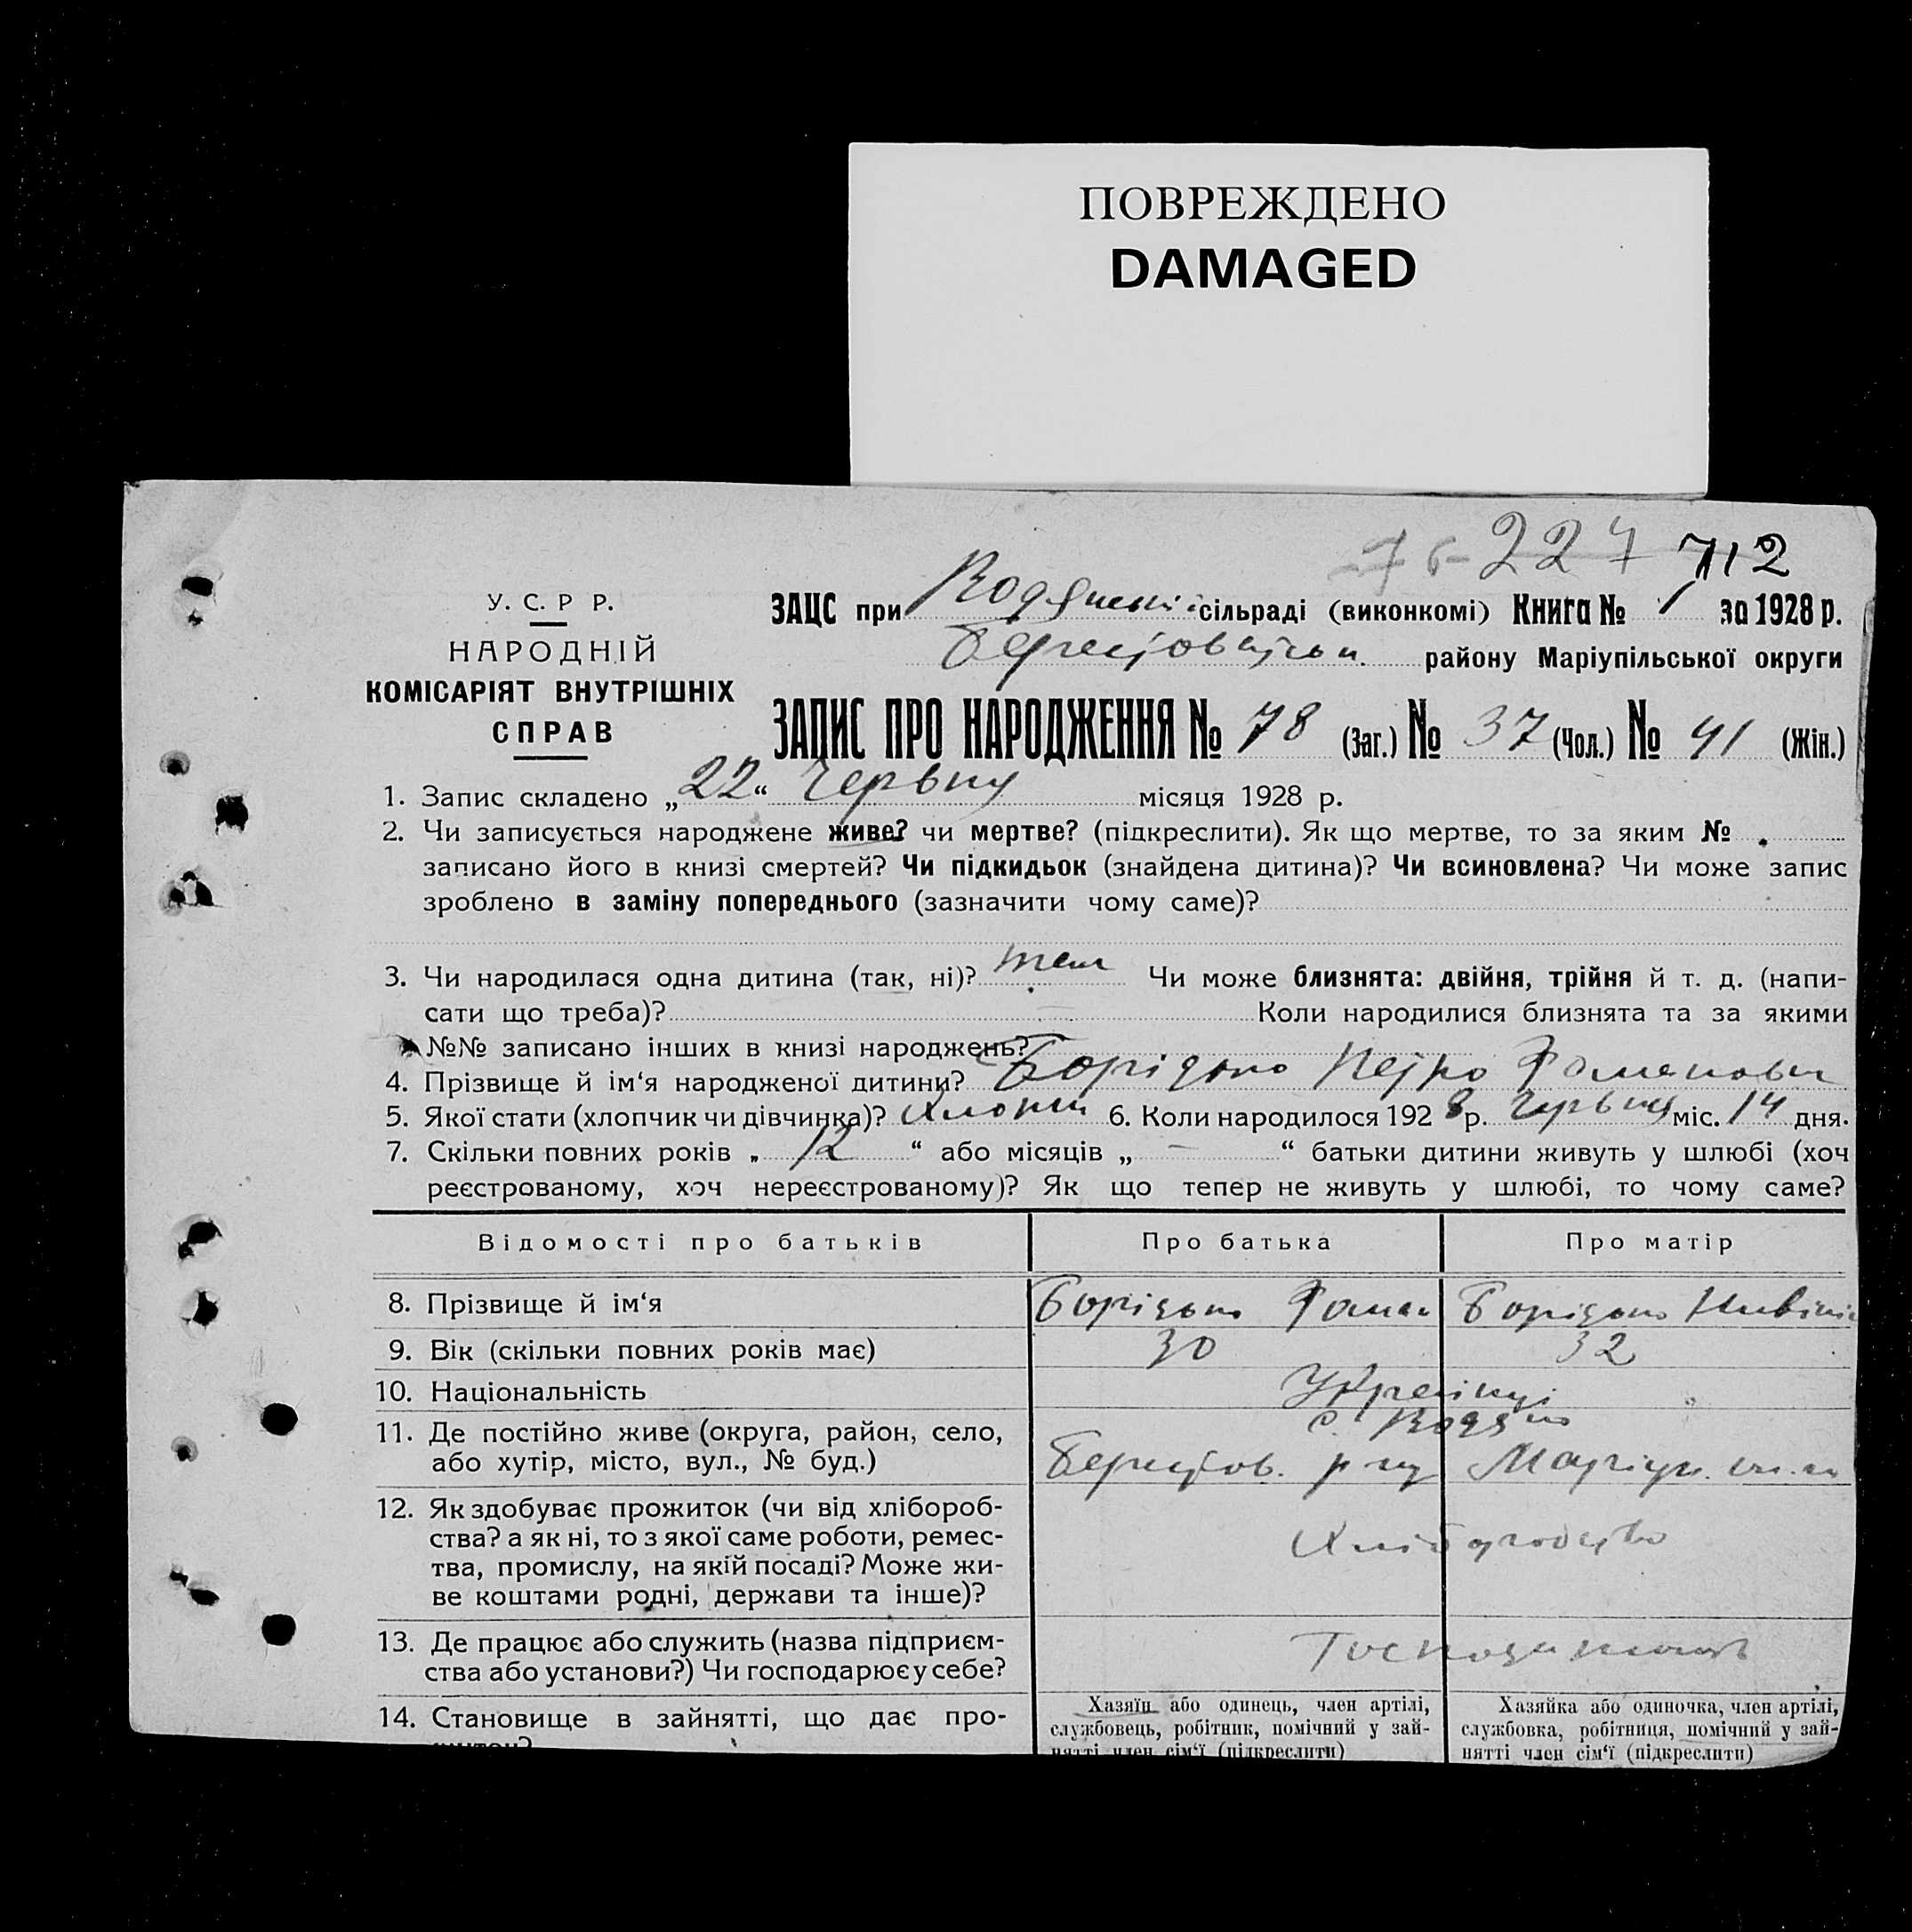 ПОВРЕЖДЕНО
DAMAGED
227 712
У. С. Р Р.
НАРОДНІЙ
КОМІСАРІЯТ ВНУТРІШНІХ
СПРАВ
ЗАЦС при Водяненські сільраді (виконкомі) Книга № 1 за 1928 р.
району Маріупільської округи
ЗАПИС ПРО НАРОДЖЕННЯ № 78 (Заг.) № 37 (Чол.) № 41 (Жін.)
1. Запис складено „22“ Червня місяця 1928 р.
2. Чи записується народжене живе? чи мертве? (підкреслити). Як що мертве, то за яким №
записано його в книзі смертей? Чи підкидьок (знайдена дитина)? Чи всиновлена? Чи може запис
зроблено в заміну попереднього (зазначити чому саме)?
3. Чи народилася одна дитина (так, ні)? так Чи може близнята: двійня, трійня й т. д. (напи-
сати що треба)? Коли народилися близнята та за якими
№№ записано інших в книзі народжень?
4. Прізвище й ім‘я народженої дитини? Петро Романович
5. Якої стати (хлопчик чи дівчинка)? Хлопчик 6. Коли народилося 1928 р. Червня міс. 14 дня.
7. Скільки повних років „ 12 “ або місяців „ — “ батьки дитини живуть у шлюбі (хоч
реєстрованому, хоч нереєстрованому)? Як що тепер не живуть у шлюбі, то чому саме?
Відомості про батьків Про батька Про матір
8. Прізвище й ім‘я Роман
9. Вік (скільки повних років має) 30 32
10. Національність Українці
11. Де постійно живе (округа, район, село, с. Водяно
або хутір, місто, вул., № буд.) Берестов. р-ну Маріуп.
12. Як здобуває прожиток (чи від хлібороб-
ства? а як ні, то з якої саме роботи, ремес- Хліборобство
тва, промислу, на якій посаді? Може жи-
ве коштами родні, держави та інше)?
13. Де працює або служить (назва підприєм-
ства або установи?) Чи господарює у себе?
14. Становище в зайнятті, що дає про-
житок?
Хазяїн або одинець, член артілі,
службовець, робітник, помічний у зай-
нятті член сім‘ї (підкреслити)
Хазяйка або одиночка, член артілі,
службовка, робітниця, помічний у зай-
нятті член сім‘ї (підкреслити)